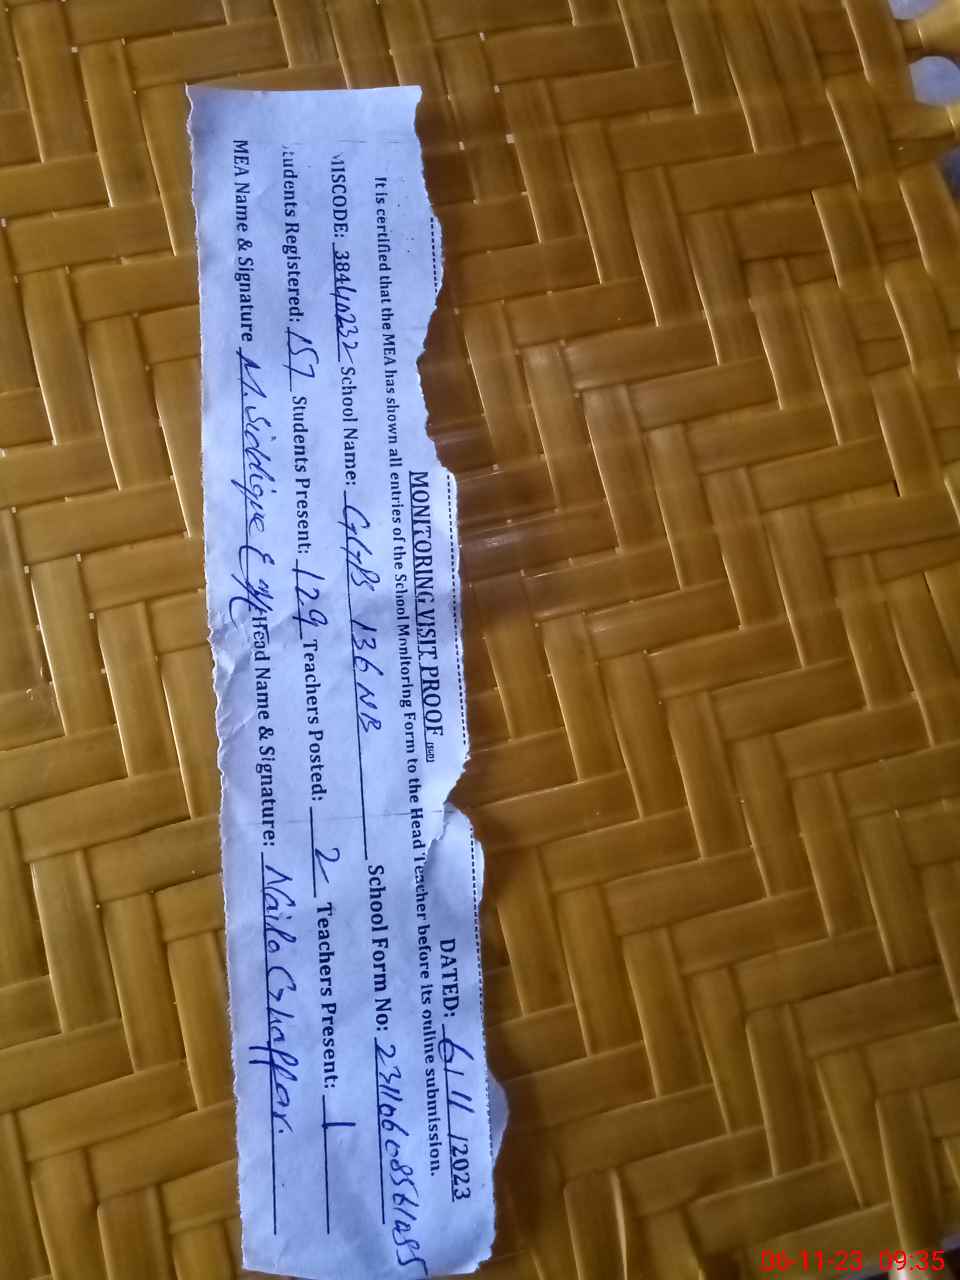 MONITORING VISIT PROOF DATED: 6/11/2023
It is certified that the MEA has shown all entries of the School Monitoring Form to the Head Teacher before its online submission.
MISCODE: 38440232 School Name: GGPS 136 NB School Form No:
Students Registered: 157 Students Present: 129 Teachers Posted: 2 Teachers Present: 1
MEA Name & Signature M. Siddique Head Name & Signature: Naila Ghaffar.
06-11-23 09:35